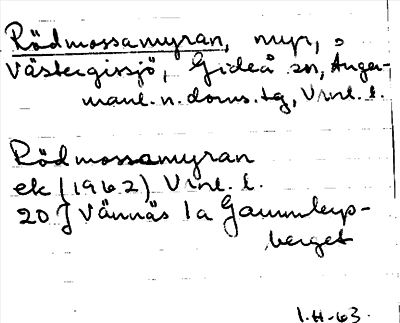 Rödmossamyran, myr,
Västergissjö, Gideå sn, Ånger-
manl. n. doms. tg, Vnl. l.
Rödmossamyran
ek (1962) Vnl. l.
20 J Vännäs 1a Gammleps-
berget